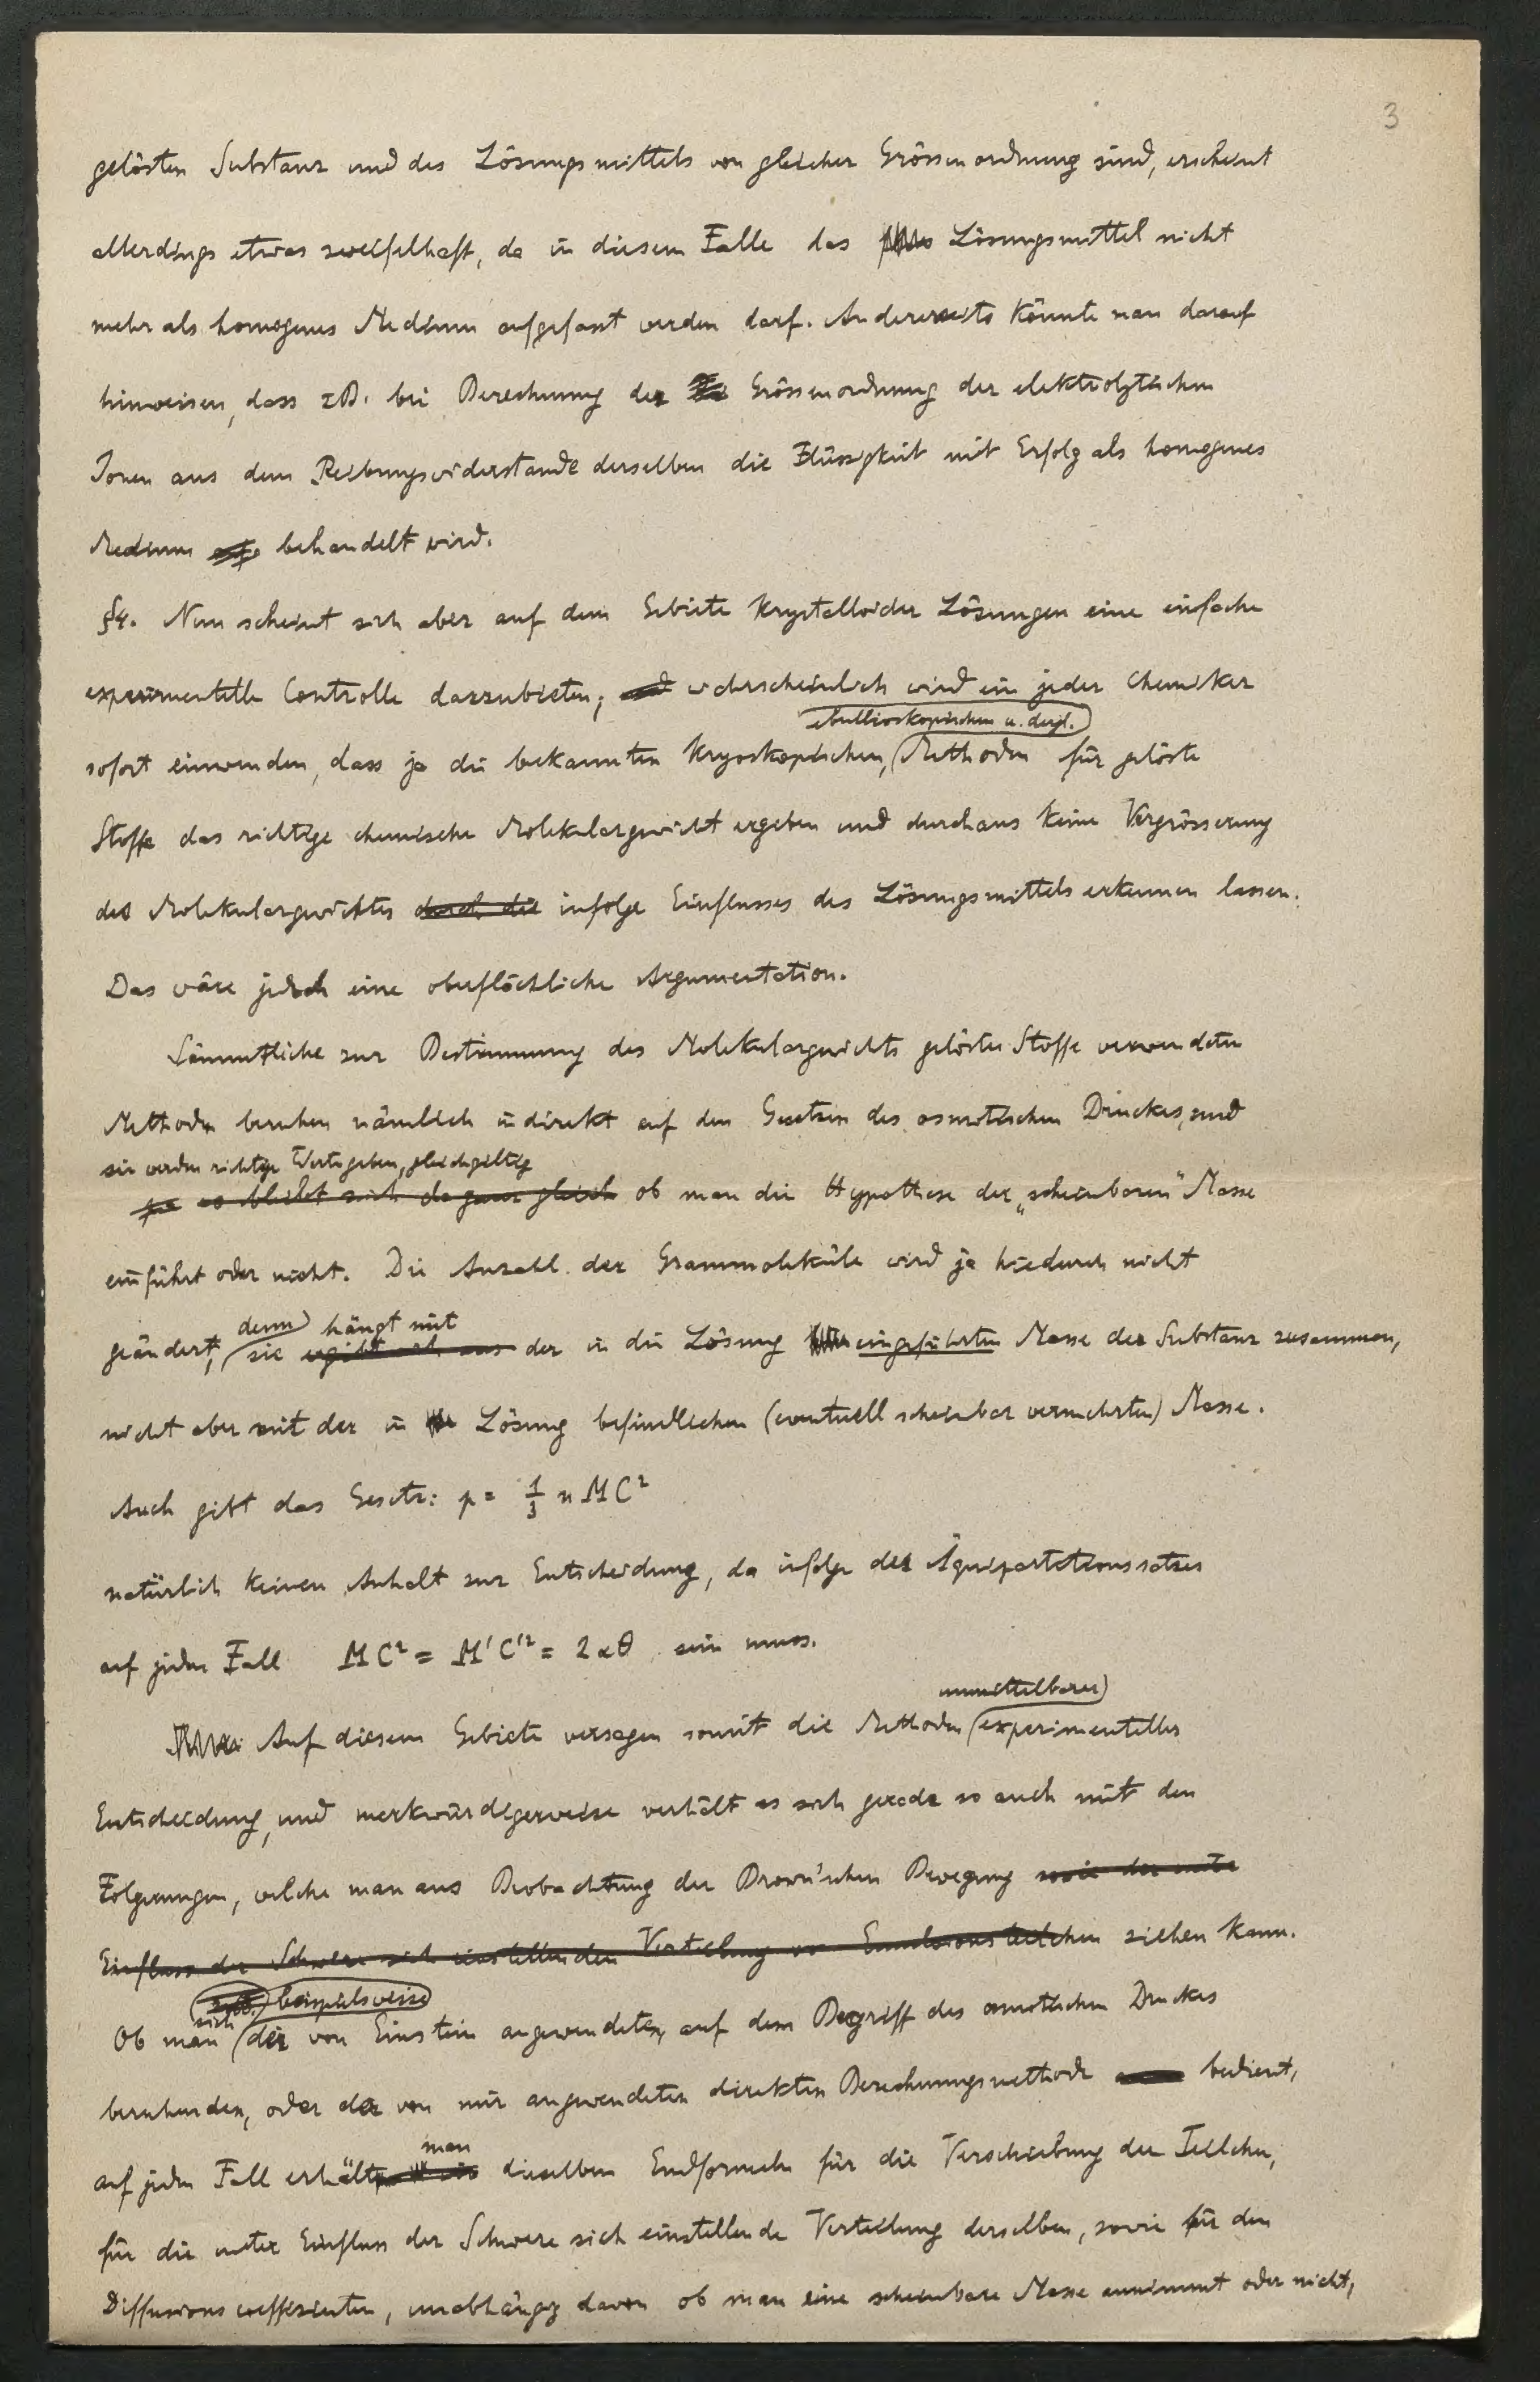 3
gelösten Substanz und des Lösungsmittels von gleicher Grössenordnung sind, erscheint
allerdings etwas zweifelhaft, da in diesem Falle das Lösungsmittel nicht
mehr als homogenes Medium aufgefasst werden darf. Andererseits könnte man darauf
hinweisen, dass zB. bei Berechnung der Grössenordnung der elektrolytischen
Ionen aus dem Reibungswiderstande derselben die Flüssigkeit mit Erfolg als homogenes
Medium behandelt wird.
§4. Nun scheint sich aber auf dem Gebiete krystalloider Lösungen eine einfache
experimentelle Controlle darzubieten; und wahrscheinlich wird ein jeder Chemiker
ebullioskopischen u. dergl.
sofort einwenden, dass ja die bekannten kryoskopischen, Methoden für gelöste
Stoffe das richtige chemische Molekulargewicht ergeben und durchaus keine Vergrösserung
des Molekulargewichtes durch die infolge Einflusses des Lösungsmittels erkennen lassen.
Das wäre jedoch eine oberflächliche Argumentation.
Sämmtliche zur Bestimmung des Molekulargewichts gelöster Stoffe verwendeten
Methoden beruhen nämlich indirekt auf den Gesetzen des osmotischen Druckes, und
sie werden richtige Werte geben, gleichgiltig
es bleibt sich da ganz gleich ob man die Hypothese der „scheinbaren" Masse
einführt oder nicht. Die Anzahl der Grammoleküle wird ja hiedurch nicht
denn hängt mit
geändert, sie ergibt sich aus der in die Lösung eingeführten Masse der Substanz zusammen,
nicht aber mit der in Lösung befindlichen (eventuell scheinbar vermehrten) Masse.
Auch gibt das Gesetz: p = 1/3 n M C²
natürlich keinen Anhalt zur Entscheidung, da infolge des Äquipartitionssatzes
auf jeden Fall MC² = M'C'² = 2αθ sein muss.
unmittelbarer
Auf diesem Gebiete versagen somit die Methoden experimenteller
Entscheidung, und merkwürdigerweise verhält es sich gerade so auch mit den
Folgerungen, welche man aus Beobachtung der Brown'schen Bewegung sowie der unter
Einfluss der Schwere sich einstellenden Verteilung von Emulsionsteilchen ziehen kann.
beispielsweise
sich
Ob man der von Einstein angewendeten, auf dem Begriff des osmotischen Druckes
beruhenden, oder der von mir angewendeten direkten Berechnungsmethode bedient,
man
auf jeden Fall erhält dieselben Endformeln für die Verschiebung der Teilchen,
für die unter Einfluss der Schwere sich einstellende Verteilung derselben, sowie für den
Diffusionscoeffizienten, unabhängig davon ob man eine scheinbare Masse annimmt oder nicht,